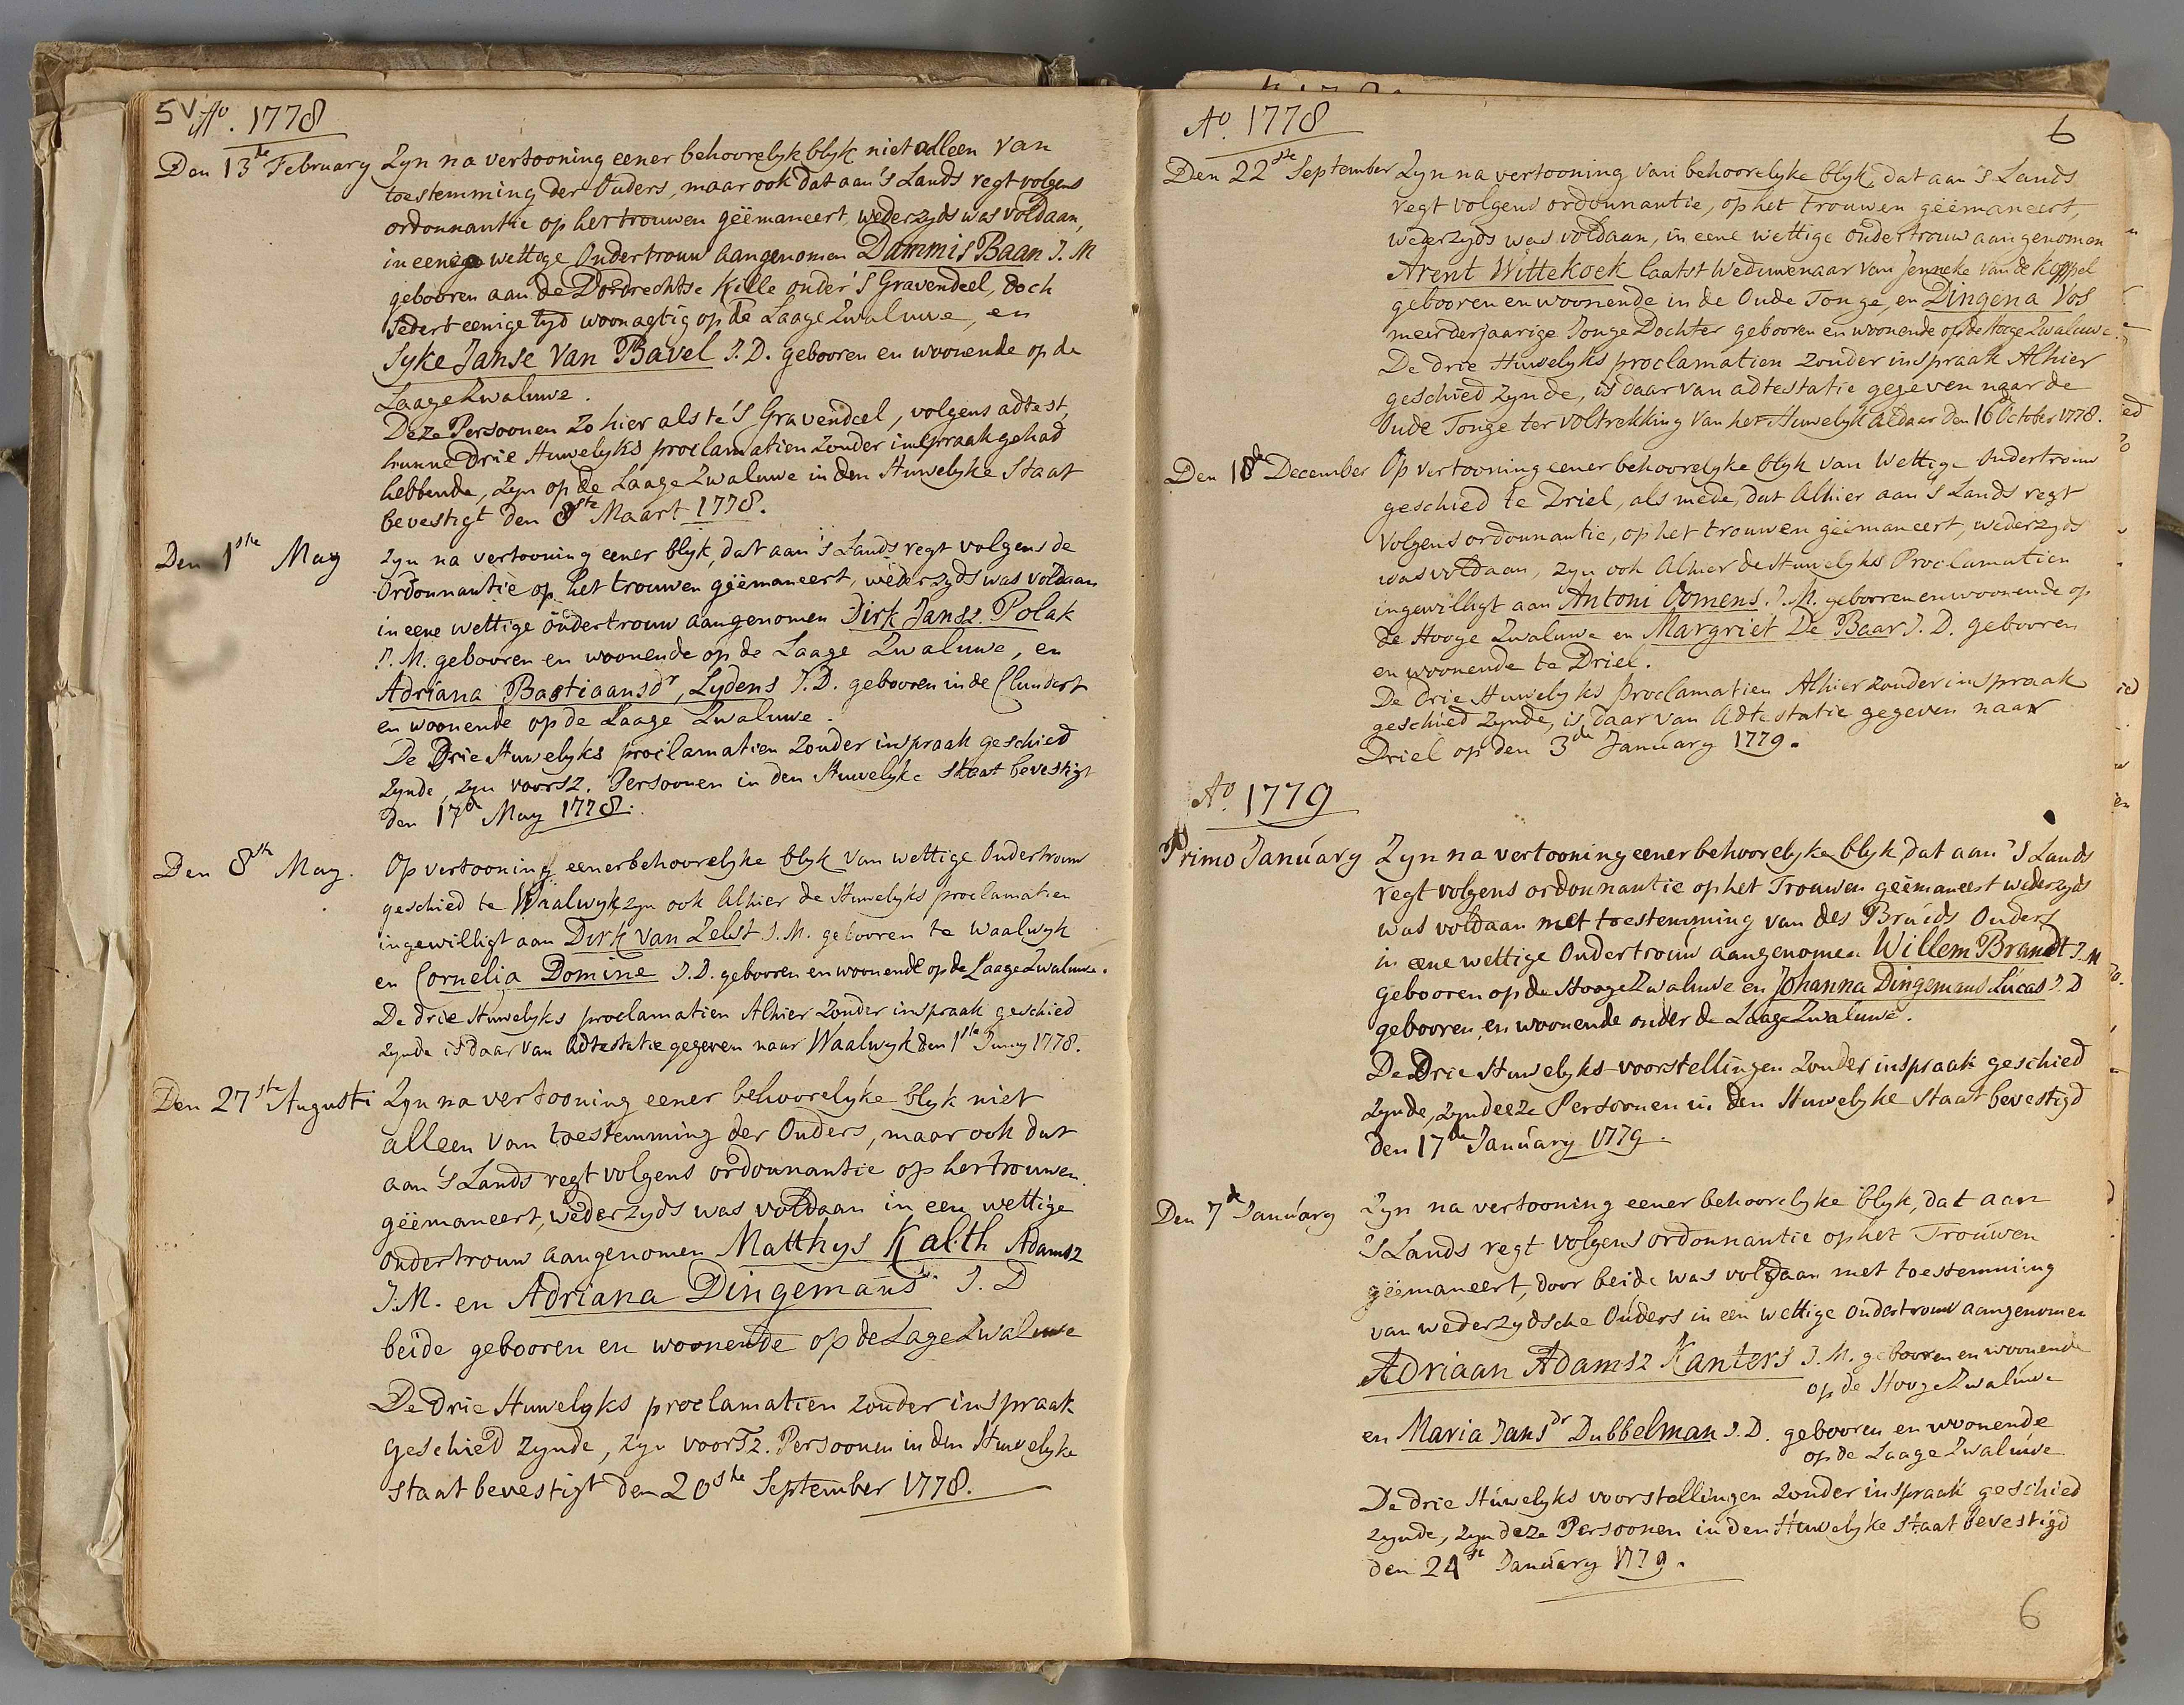 5v Ao. 1778
Den 13de February Zyn na vertooning eener behoorelyk blyk niet alleen van
toestemming der Ouders, maar ook dat aan 's Lands regt volgens
ordonnantie op het trouwen geëmaneert, wederzyds was voldaan,
in eene wettige Ondertrouw aangenomen Dammis Baan J. M
gebooren aan de Dordrechtse Kille onder 'S Gravendeel, doch
Sedert eenige tyd woonagtig op de Laage Zwaluwe, en
Syke Janse Van Bavel J. D. gebooren en woonende op de
Laage Zwaluwe.
Deze Persoonen Zo hier als te 'S Gravendeel, volgens adtest,
hunne drie Huwelyks proclamatien zonder inspraak gehad
hebbende, Zyn op de Laage Zwaluwe in den Huwelyke Staat
bevestigt den 8ste Maart 1778.
Den 1ste May Zyn na vertooning eener blyk, dat aan 's Lands regt volgens de
Ordonnantie op het trouwen geëmaneert, wederzyds was voldaan
in eene wettige ondertrouw aangenomen Dirk Jansz. Polak
J. M. gebooren en woonende op de Laage Zwaluwe, en
Adriana Bastiaansdr, Lydens J. D. gebooren in de Clundert
en woonende op de Laage Zwaluwe.
De Drie Huwelyks proclamatien Zonder inspraak geschied
Zynde, Zyn voorsz. Persoonen in den Huwelyke staat bevestigt
den 17de May 1778.
Den 8ste May. Op vertooning eener behoorelyke blyk van wettige Ondertrouw
geschied te Waalwyk, zyn ook Alhier de Huwelyks proclamatien
ingewilligt aan Dirk Van Zelst J. M. gebooren te Waalwyk
en Cornelia Domine J. D. gebooren en woonende op de Laage Zwaluwe.
De drie Huwelyks proclamatien Alhier zonder inspraak geschied
zynde is daar van Adtestatie gegeven naar Waalwyk den 1ste Juny 1778.
Den 27ste Augusti Zyn na vertooning eener behoorelyke blyk niet
alleen van toestemming der Ouders, maar ook dat
aan 'S Lands regt volgens ordonnantie op het trouwen
geëmaneert, wederzyds was voldaan in een wettige
ondertrouw aangenomen Matthys Kalth Adamsz
J. M. en Adriana Dingemans J. D
beide gebooren en woonende op de Lage Zwaluwe
De drie Huwelyks proclamatien zonder inspraak
geschied zynde, zyn voorsz. Persoonen in den Huwelyke
staat bevestigt den 20ste September 1778.
Ao. 1778
6
Den 22ste September Zyn na vertooning van behoorelyke blyk, dat aan 's Lands
regt volgens ordonnantie, op het trouwen geëmaneert,
wederzyds was voldaan, in eene wettige ondertrouw aangenomen
Arent Wittekoek laatst Weduwenaar van Jenneke van de Koppel
gebooren en woonende in de Oude Tonge, en Dingena Vos
meerderjaarige Jonge Dochter gebooren en woonende op de Hooge Zwaluwe.
De drie Huwelyks proclamatien zonder inspraak Alhier
geschied zynde, is daar van adtestatie gegeven naar de
Oude Tonge ter voltrekking van het Huwelyk aldaar den 16de October 1778.
Den 18de December Op vertooning eener behoorelyke blyk van wettige Ondertrouw
geschied te Driel, als mede, dat Alhier aan 's Lands regt
volgens ordonnantie, op het trouwen geëmaneert, wederzyds
was voldaan, zyn ook Alhier de Huwelyks Proclamatien
ingewilligt aan Antoni Oomens J. M. gebooren en woonende op
de Hooge Zwaluwe en Margriet De Baar J. D. gebooren
en woonende te Driel.
De drie Huwelyks Proclamatien Alhier zonder inspraak
geschied zynde, is daar van Adtestatie gegeven naar
Driel op den 3de January 1779.
Ao. 1779
Primo January Zyn na vertooning eener behoorelyke blyk, dat aan 's Lands
regt volgens ordonnantie op het Trouwen geëmaneert wederzyds
was voldaan met toestemming van des Bruids Ouders
in eene wettige Ondertrouw aangenomen Willem Brandt J. M
gebooren op de Hooge Zwaluwe en Johanna Dingemans Lucas J. D
gebooren en woonende onder de Laage Zwaluwe.
De Drie Huwelyks voorstellingen Zonder inspraak geschied
Zynde, Zyn deeze Persoonen in den Huwelyke Staat bevestigd
den 17de January 1779.
Den 7de January Zyn na vertooning eener behoorelyke blyk, dat aan
'S Lands regt volgens ordonnantie op het Trouwen
geëmaneert, door beide was voldaan met toestemming
van wederzydsche Ouders in een wettige ondertrouw aangenomen
Adriaan Adamsz Kanters J. M. gebooren en woonende
op de Hooge Zwaluwe
en Maria Jansdr Dubbelman J. D. gebooren en woonende
op de Laage Zwaluwe
De drie Huwelyks voorstellingen zonder inspraak geschied
zynde, zyn deze Persoonen in den Huwelyke Staat bevestigd
den 24ste January 1779.
6